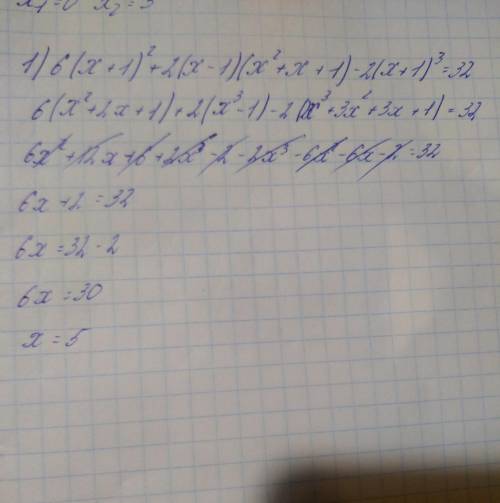 x₁=0 x₂=3
1) 6(x+1)²+2(x-1)(x²+x+1)-2(x+1)³=32
6(x²+2x+1)+2(x³-1)-2(x³+3x²+3x+1)=32
6x²+12x+6+2x³-2-2x³-6x²-6x-2=32
6x+2=32
6x=32-2
6x=30
x=5